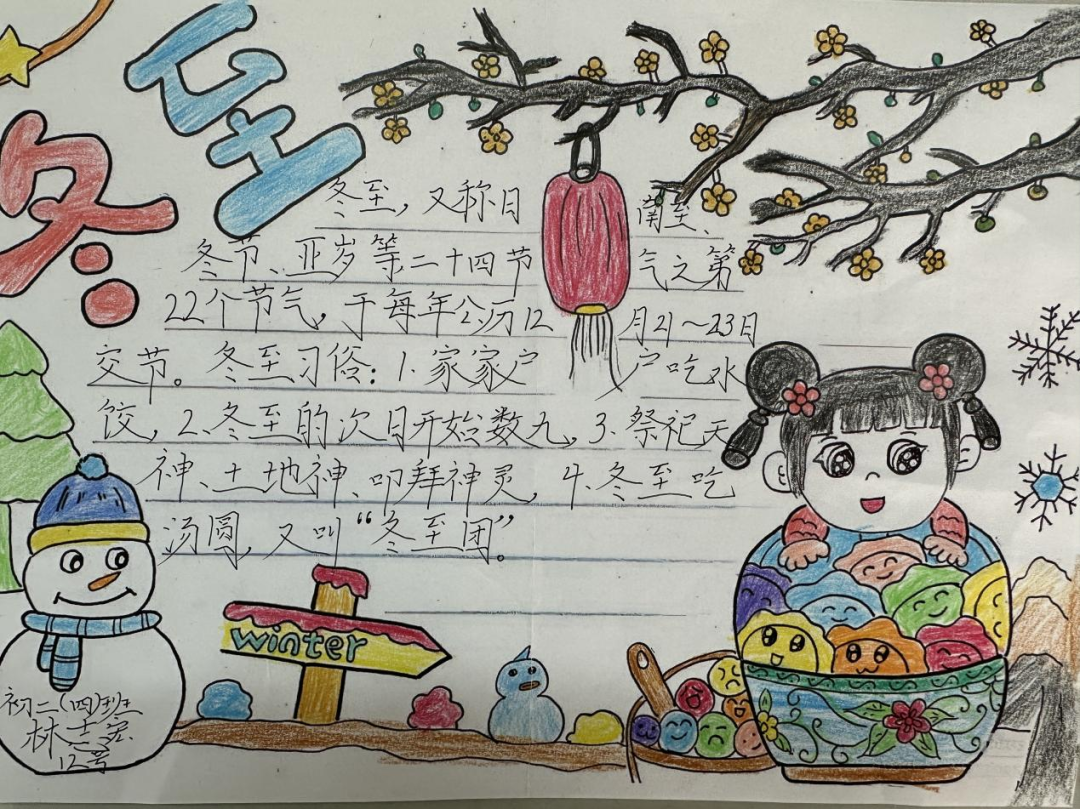 冬至
冬至，又称日南至、
冬节、亚岁等二十四节气之第
22个节气，于每年公历12月21～23日
交节。冬至习俗：1.家家户户吃水
饺，2.冬至的次日开始数九，3.祭祀天
神、土地神、叩拜神灵，4.冬至吃
汤圆，又叫“冬至团”。
winter
初二（四）班
林志宏
12号